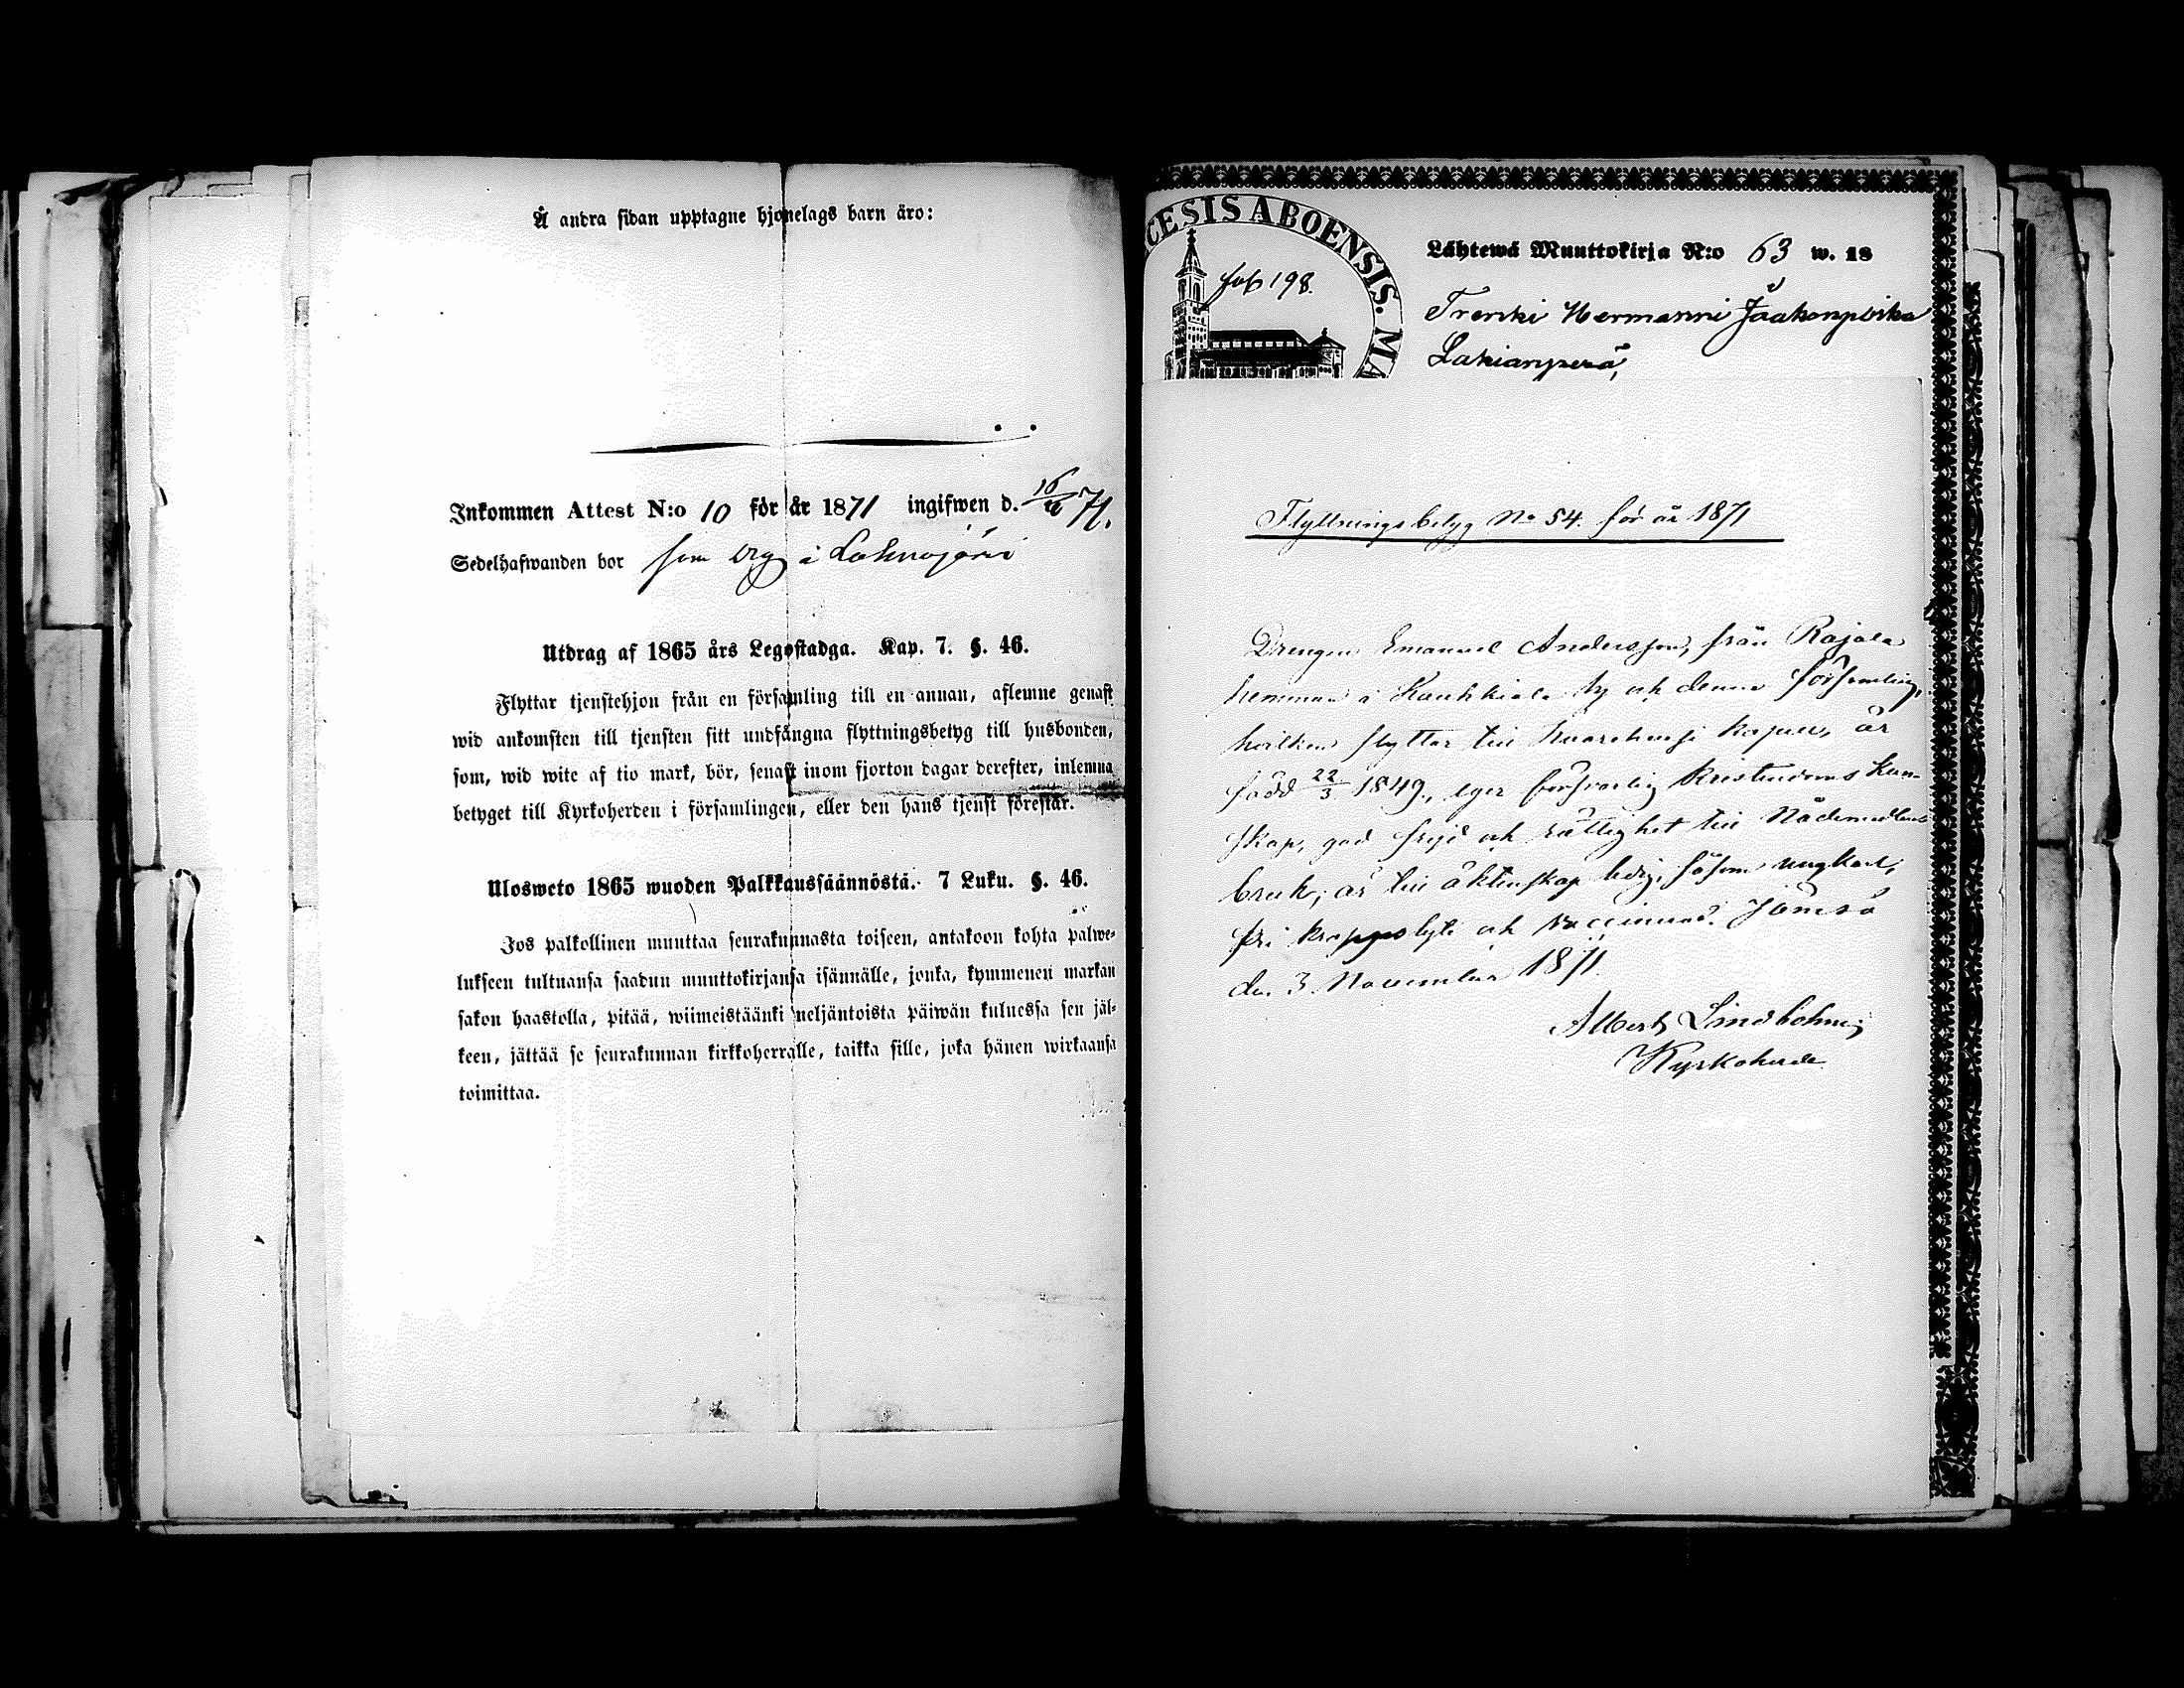 Å andra sidan upptagne hjonelags barn äro:
Inkommen Attest N:o 10 för år 1871 ingifwen d. 16/11 71.
Sedelhafwanden bor som drg i Lohnajärvi
Utdrag af 1865 års Legostadga. Kap. 7. §. 46.
Flyttar tjenstehjon från en församling till en annan, aflemne genast
wid ankomsten till tjensten sitt undfångna flyttningsbetyg till husbonden,
som, wid wite af tio mark, bör, senast inom fjorton dagar derefter, inlemna
betyget till Kyrkoherden i församlingen, eller den hans tjenst förestår.
Ulosweto 1865 wuoden Palkkaussäännöstä. 7 Luku. §. 46.
Jos palkollinen muuttaa seurakunnasta toiseen, antakoon kohta palwe-
lukseen tultuansa saadun muuttokirjansa isännälle, jonka, kymmenen markan
sakon haastolla, pitää, wiimeistäänki neljäntoista päiwän kuluessa sen jäl-
keen, jättää se seurakunnan kirkkoherralle, taikka sille, joka hänen wirkaansa
toimittaa.
CESIS ABOENSIS. MA
198.
Lähtewä Muuttokirja N:o 63 w. 18
Trenki Hermanni Jaakonpoika
Lakianperä,
Flyttningsbetyg No 54. för år 1871
Drengen Emanuel Andersson, från Rajala
hemman i Kauhkiala by och denna församling,
hvilken flyttar till Kuorehvesi Kapell, är
född 22/3 1849, eger försvarlig kristendoms kun-
skap, god frejd och rättighet till Nådemedlens
bruk; är till äktenskap ledig, såsom ungkarl,
fri kroppslyte och vaccinerad. Jämsä
den 3 November 1871.
Albert Lindbohm
Kyrkoherde.